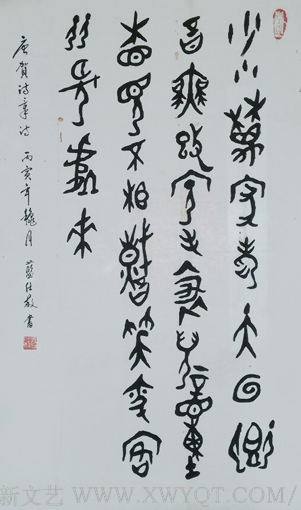 少小離家老大回鄉
音無改鬢毛衰兒童
相見不相識笑問客
從何處來
唐賀知章诗 丙亥年穐月 藍仕敬書
新文艺 WWW.XWYQT.COM